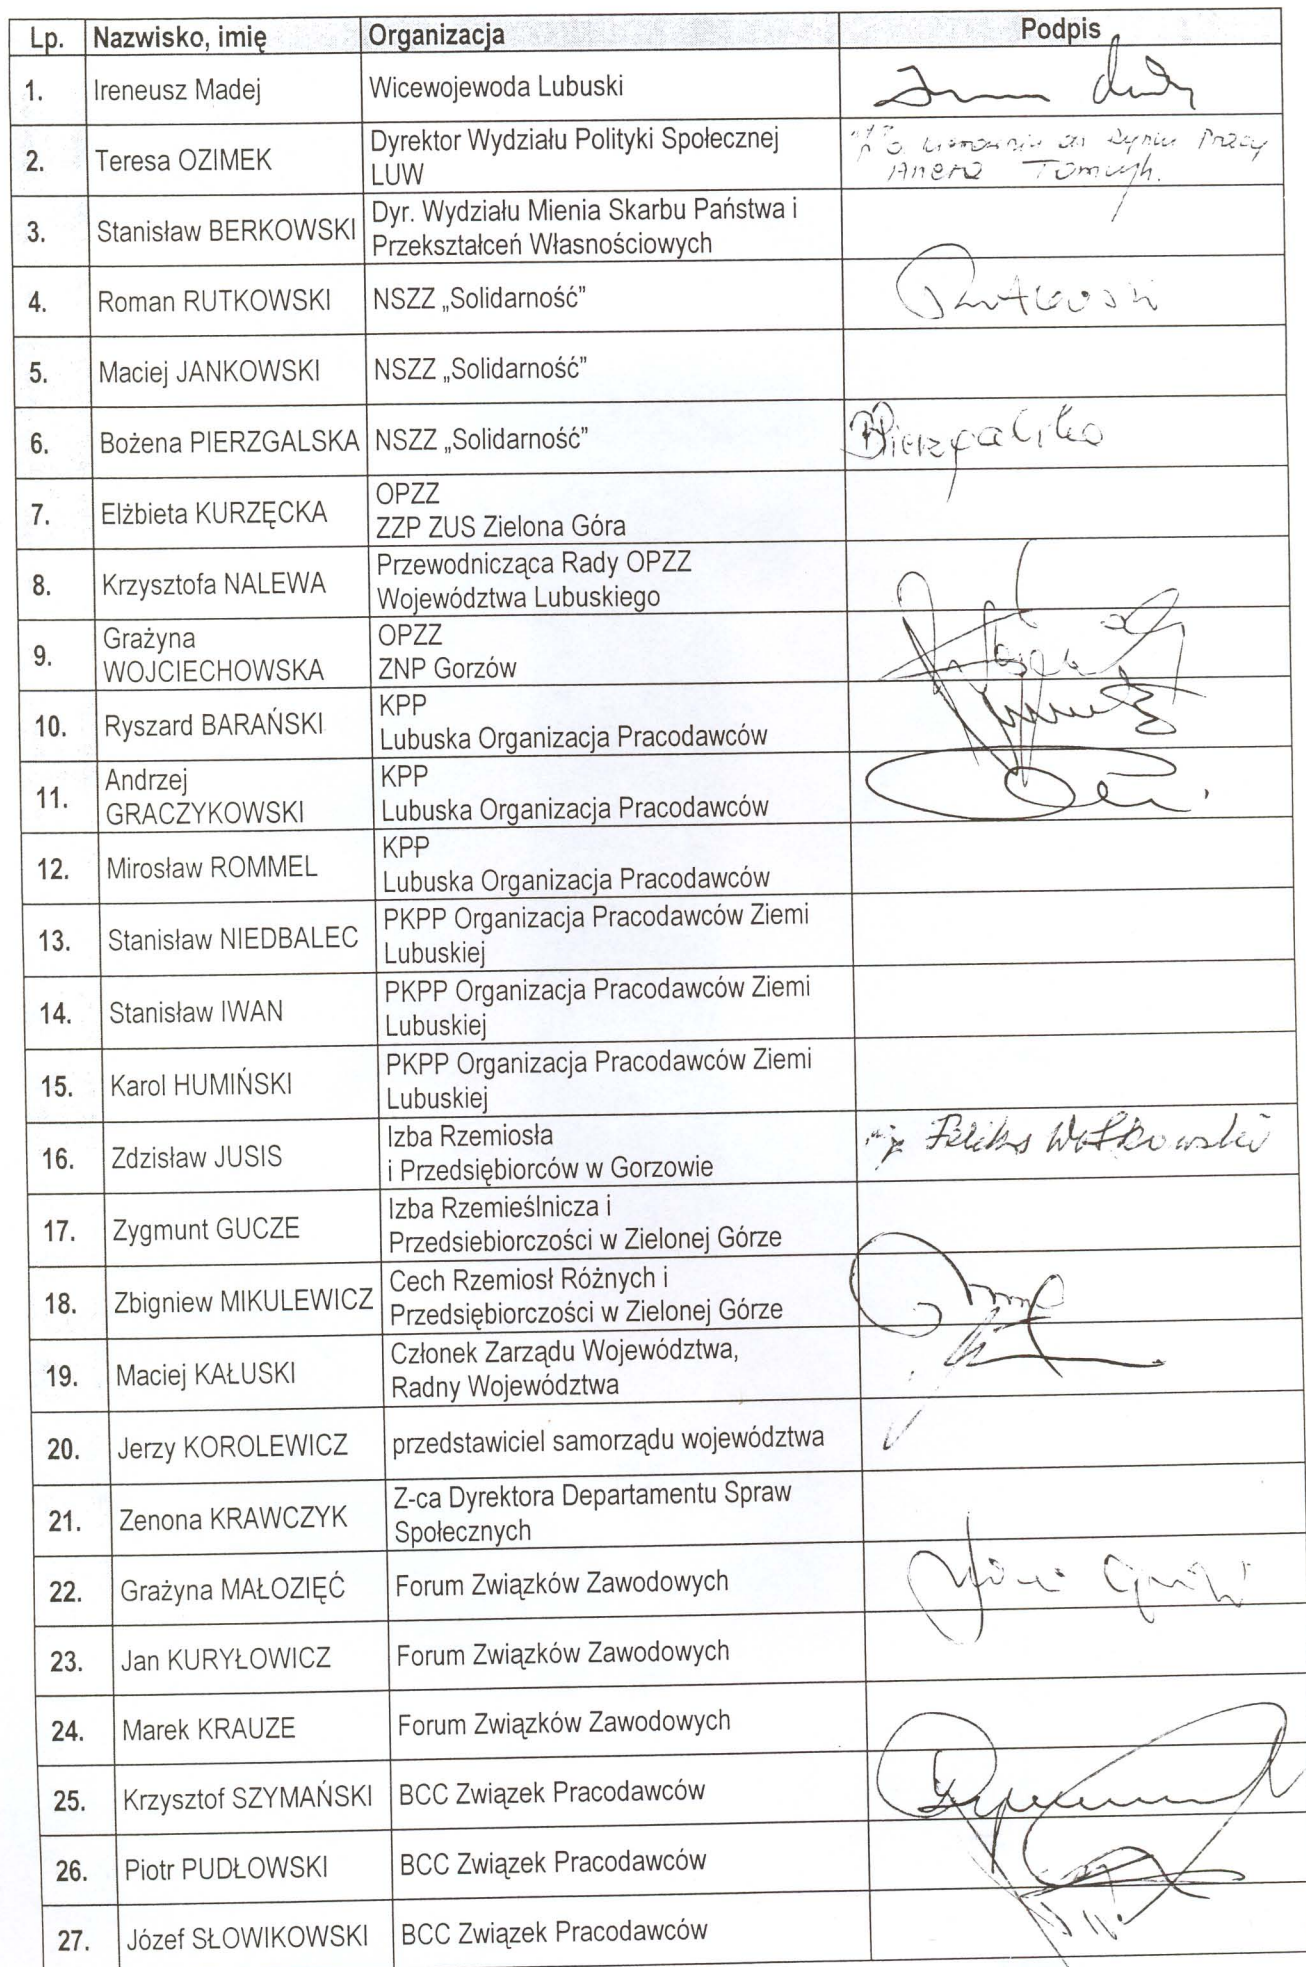 Lp. Nazwisko, imię Organizacja Podpis
1. Ireneusz Madej Wicewojewoda Lubuski
2. Teresa OZIMEK Dyrektor Wydziału Polityki Społecznej
LUW
Rynku Pracy
Aneta Tomczyk.
3. Stanisław BERKOWSKI Dyr. Wydziału Mienia Skarbu Państwa i
Przekształceń Własnościowych
4. Roman RUTKOWSKI NSZZ „Solidarność” Rutkowski
5. Maciej JANKOWSKI NSZZ „Solidarność”
6. Bożena PIERZGALSKA NSZZ „Solidarność” BPierzgalska
7. Elżbieta KURZĘCKA OPZZ
ZZP ZUS Zielona Góra
8. Krzysztofa NALEWA Przewodnicząca Rady OPZZ
Województwa Lubuskiego
9. Grażyna
WOJCIECHOWSKA
OPZZ
ZNP Gorzów
10. Ryszard BARAŃSKI KPP
Lubuska Organizacja Pracodawców
11. Andrzej
GRACZYKOWSKI
KPP
Lubuska Organizacja Pracodawców
12. Mirosław ROMMEL KPP
Lubuska Organizacja Pracodawców
13. Stanisław NIEDBALEC PKPP Organizacja Pracodawców Ziemi
Lubuskiej
14. Stanisław IWAN PKPP Organizacja Pracodawców Ziemi
Lubuskiej
15. Karol HUMIŃSKI PKPP Organizacja Pracodawców Ziemi
Lubuskiej
16. Zdzisław JUSIS Izba Rzemiosła
i Przedsiębiorców w Gorzowie
Feliks Wołkowski
17. Zygmunt GUCZE Izba Rzemieślnicza i
Przedsiebiorczości w Zielonej Górze
18. Zbigniew MIKULEWICZ Cech Rzemiosł Różnych i
Przedsiębiorczości w Zielonej Górze
19. Maciej KAŁUSKI Członek Zarządu Województwa,
Radny Województwa
20. Jerzy KOROLEWICZ przedstawiciel samorządu województwa
21. Zenona KRAWCZYK Z-ca Dyrektora Departamentu Spraw
Społecznych
22. Grażyna MAŁOZIĘĆ Forum Związków Zawodowych
23. Jan KURYŁOWICZ Forum Związków Zawodowych
24. Marek KRAUZE Forum Związków Zawodowych
25. Krzysztof SZYMAŃSKI BCC Związek Pracodawców
26. Piotr PUDŁOWSKI BCC Związek Pracodawców
27. Józef SŁOWIKOWSKI BCC Związek Pracodawców